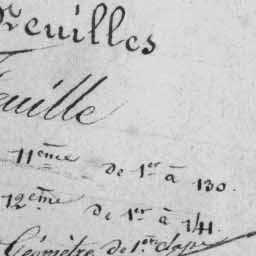 Feuilles
Feuille
11ème de 1er à 130.
12ème de 1er à 141
Géomètre de 1ère classe